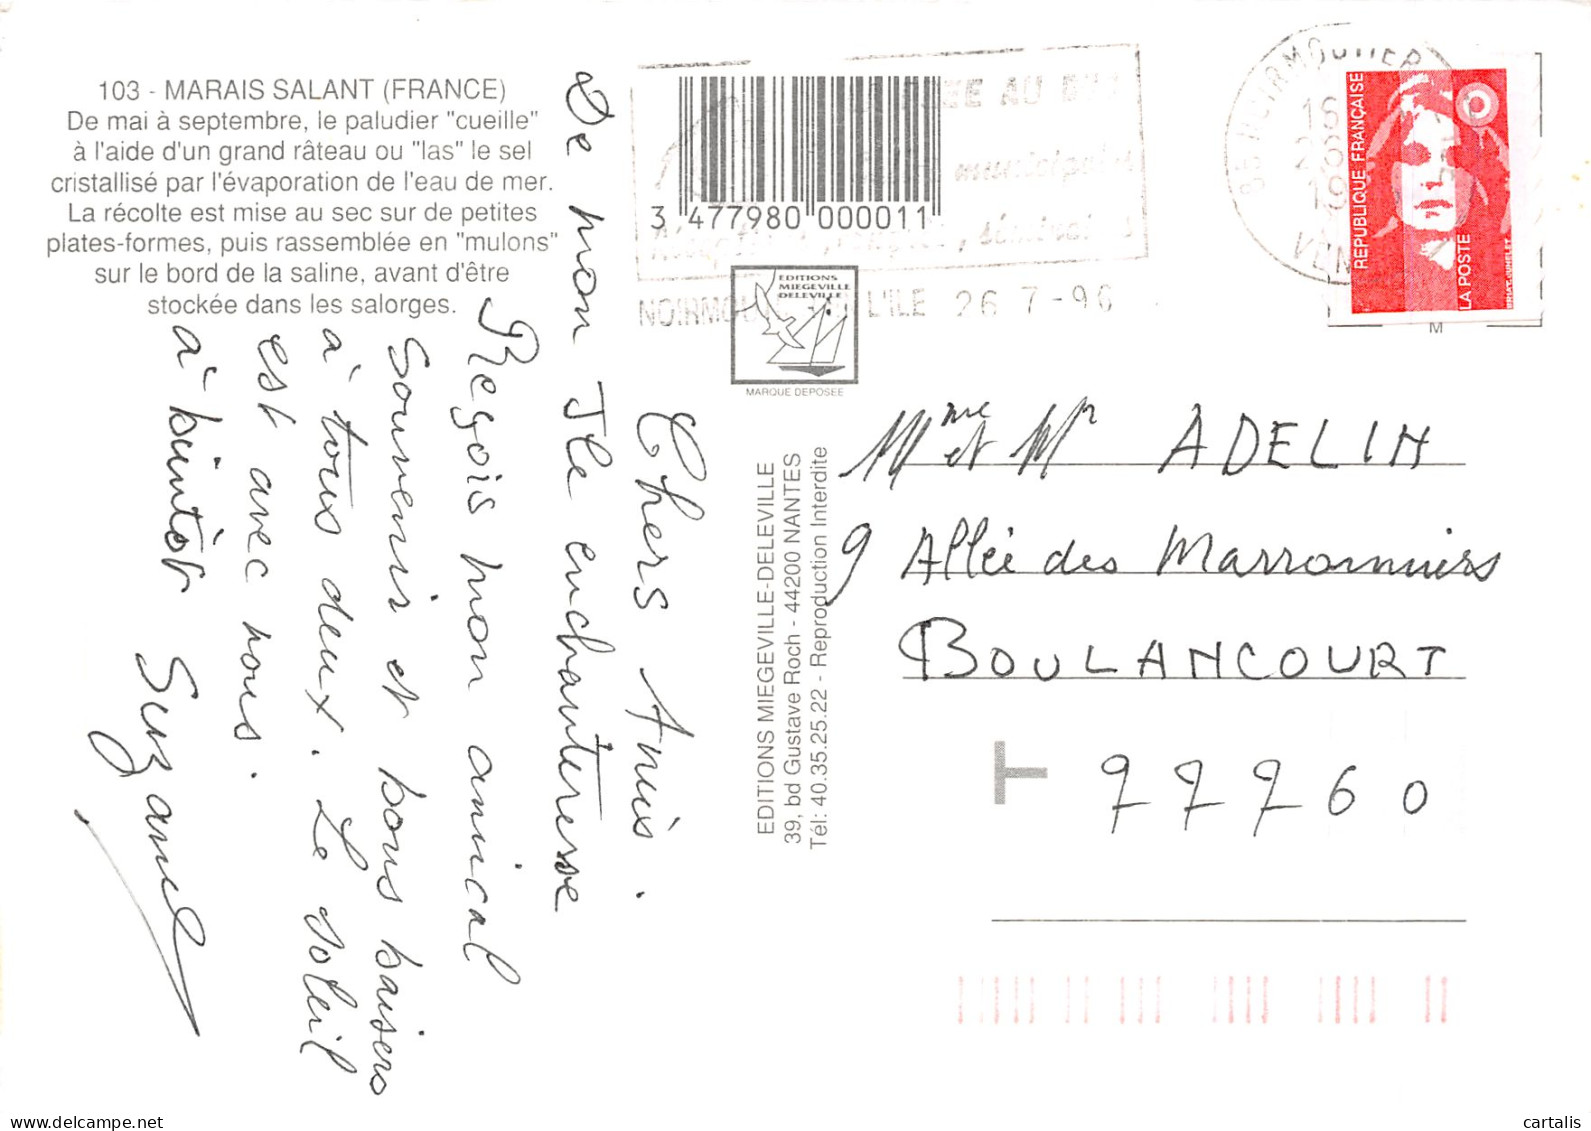 103 - MARAIS SALANT (FRANCE)
De mai à septembre, le paludier "cueille"
à l'aide d'un grand râteau ou "las" le sel
cristallisé par l'évaporation de l'eau de mer.
La récolte est mise au sec sur de petites
plates-formes, puis rassemblée en "mulons"
sur le bord de la saline, avant d'être
stockée dans les salorges.
Chers Amis.
De mon Ile enchanteresse
Reçois mon amical
Souvenir et bons baisers
à tous deux. Le soleil
est avec nous.
à bientôt
Suzanne
3 477980 000011
municipal
L'ILE 26 7-96
EDITIONS
MIEGEVILLE
DELEVILLE
MARQUE DEPOSEE
EDITIONS MIEGEVILLE-DELEVILLE
39, bd Gustave Roch - 44200 NANTES
Tél: 40.35.25.22 - Reproduction Interdite
NOIRMOUTIER
REPUBLIQUE FRANÇAISE
LA POSTE
M
Mme et Mr ADELIN
9 Allée des Marronniers
BOULANCOURT
77760
T
cartalis